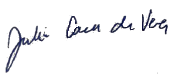 Julia Casa de Vera